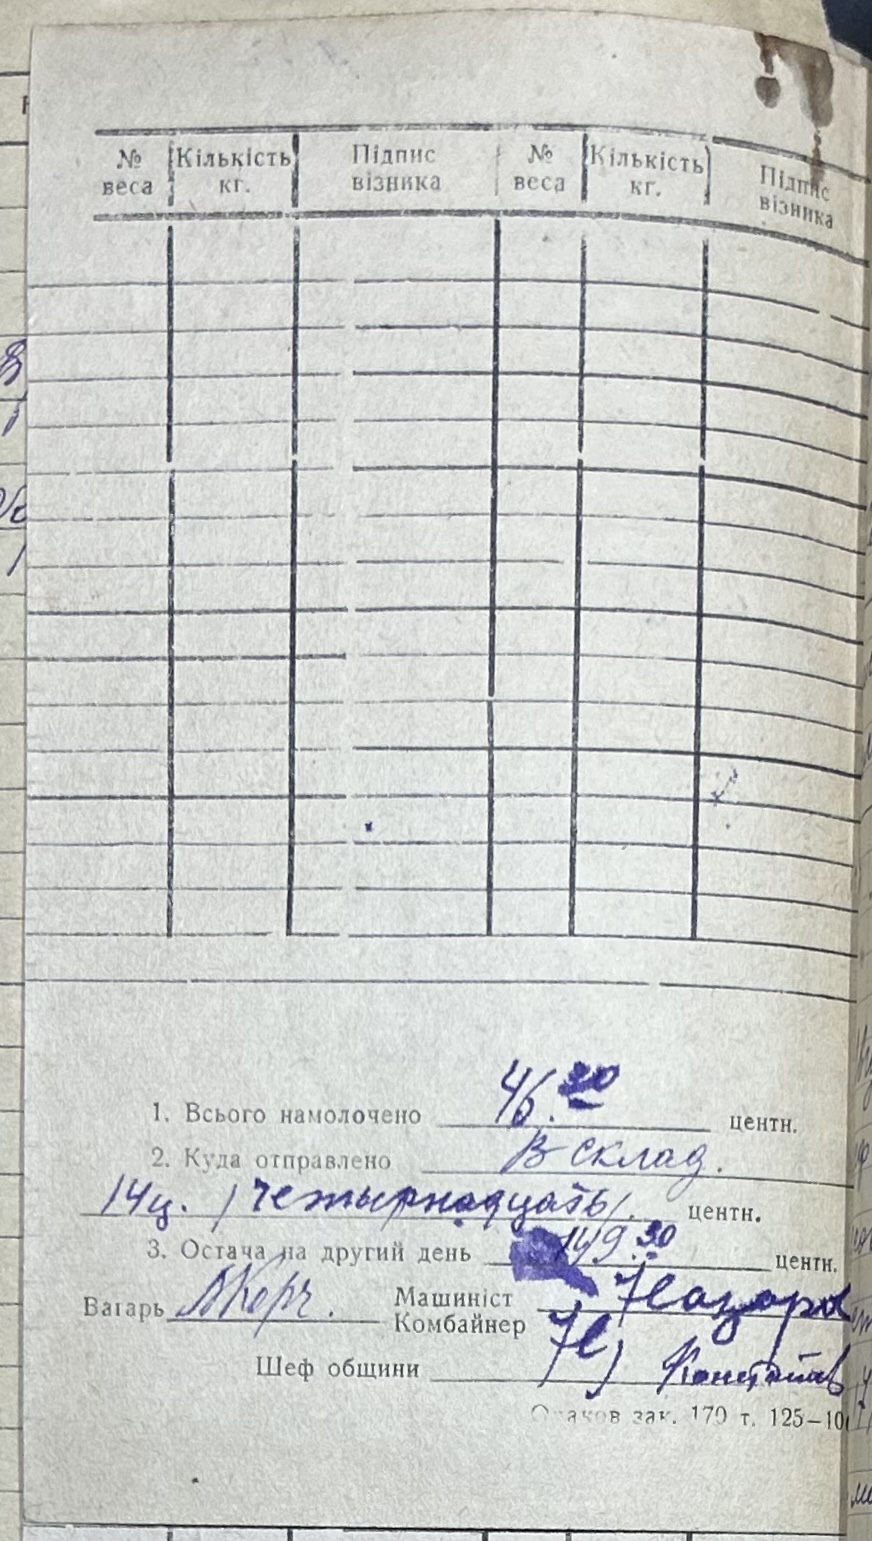 № веса Кількість кг. Підпис візника № веса Кількість кг. Підпис візника
1. Всього намолочено 46.20 центн.
2. Куда отправлено В склад.
14ц. /четырнадцать/. центн.
3. Остача на другий день 149.30 центн.
Вагарь Машиніст
Комбайнер
Шеф общини
зак. 179 т. 125–10